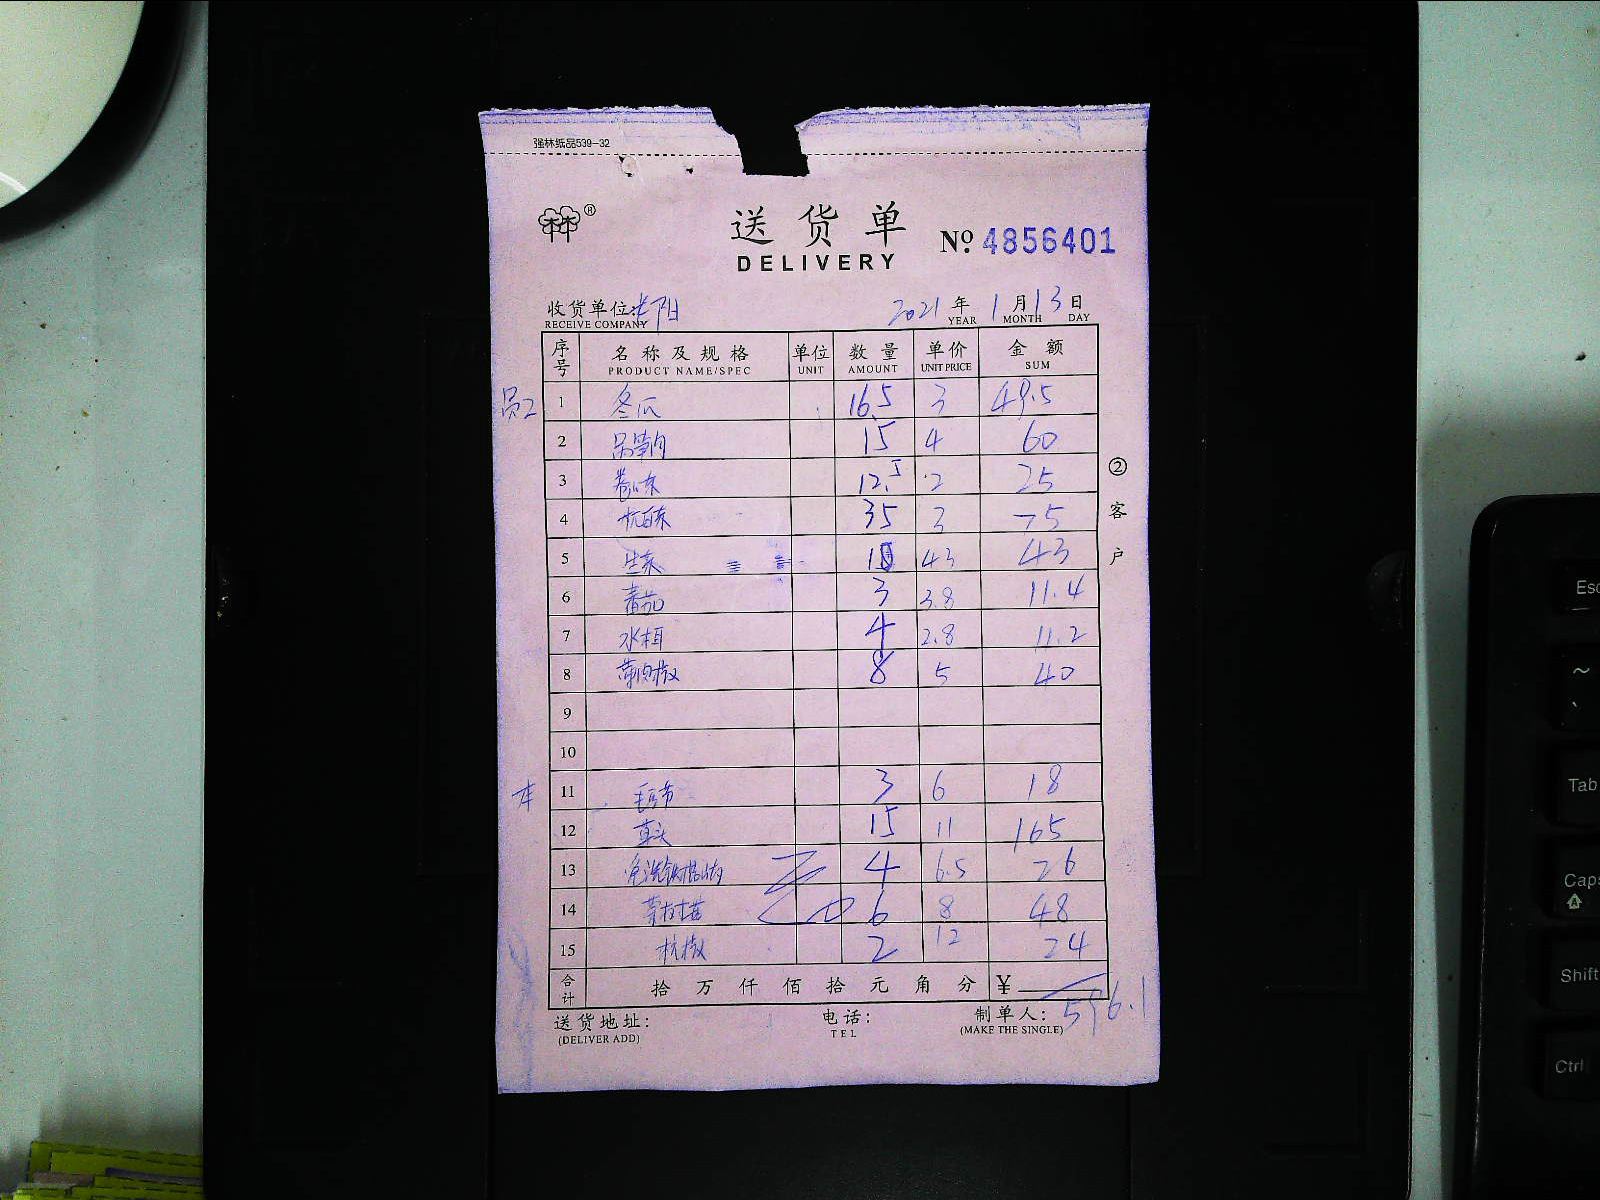 强林纸品539-32
林林®
送货单
DELIVERY
No. 4856401
收货单位: 阳 2021年1月13日
RECEIVE COMPANY YEAR MONTH DAY
序号 名称及规格 单位 数量 单价 金额
PRODUCT NAME/SPEC UNIT AMOUNT UNIT PRICE SUM
员工 1 冬瓜 16.5 3 49.5
2 15 4 60
3 卷心菜 12.5 2 25
4 杭白菜 35 3 75
5 生菜 10 43 43
6 番茄 3 3.8 11.4
7 水 4 2.8 11.2
8 8 5 40
9
10
本 11 毛豆节 3 6 18
12 草头 15 11 165
13 免洗 4 6.5 26
14 6 8 48
15 杭椒 2 12 24
合计 拾万仟佰拾元角分 ¥ 596.1
②客户
送货地址: 电话: 制单人:
(DELIVER ADD) TEL (MAKE THE SINGLE)
Esc
~
`
Tab
Caps
Shift
Ctrl